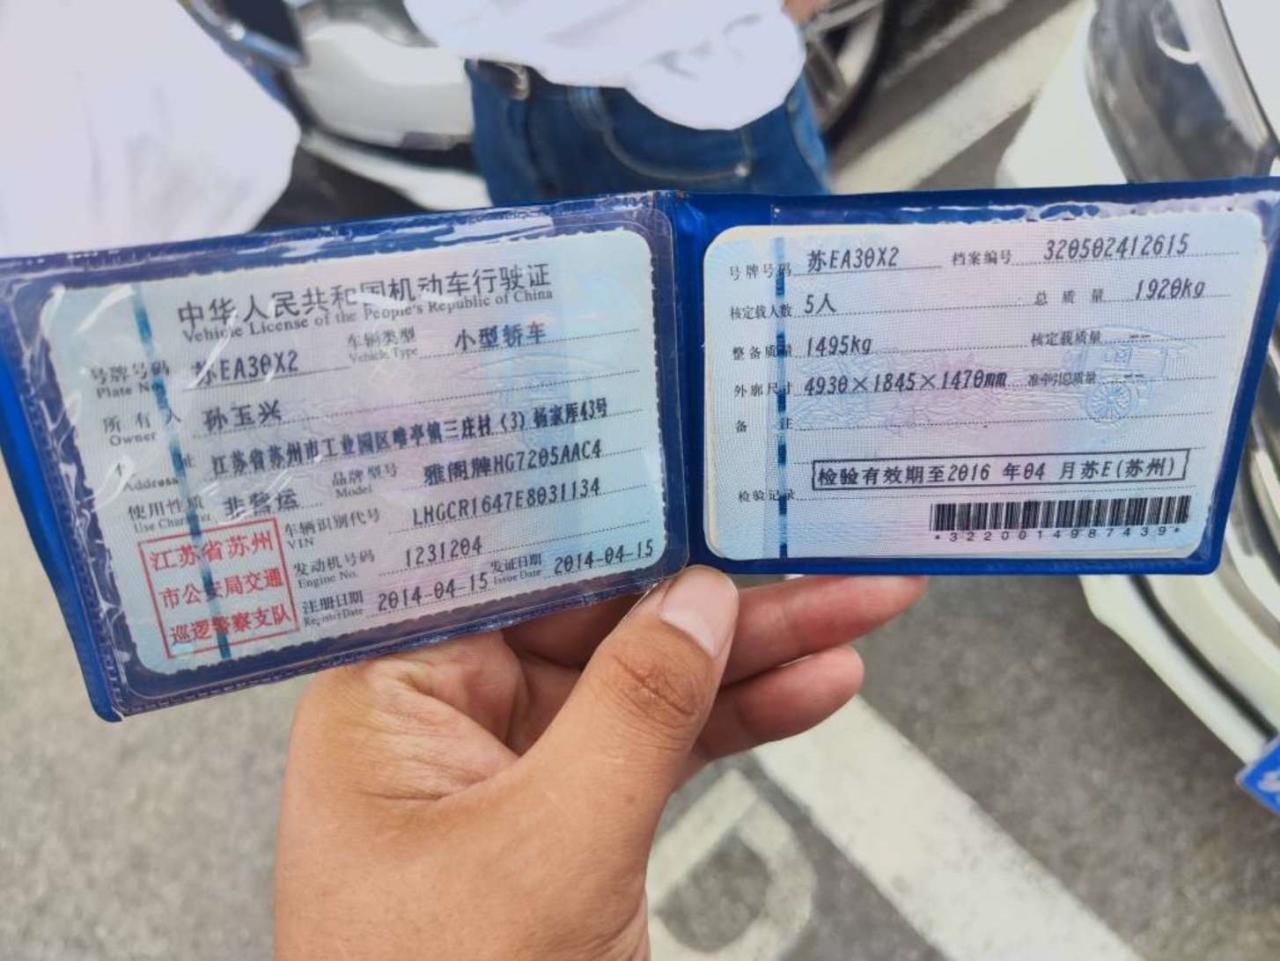 中华人民共和国机动车行驶证
Vehicle License of the People's Republic of China
号牌号码 苏EA30X2 车辆类型 小型轿车
Plate No. Vehicle Type
所有人 孙玉兴
Owner
住址 江苏省苏州市工业园区唯亭镇三庄村(3)杨家厍43号
Address
使用性质 非营运 品牌型号 雅阁牌HG7205AAC4
Use Character Model
车辆识别代号 LHGCR1647E8031134
VIN
发动机号码 1231204
Engine No.
注册日期 2014-04-15 发证日期 2014-04-15
Register Date Issue Date
江苏省苏州
市公安局交通
巡逻警察支队
号牌号码 苏EA30X2 档案编号 320502412615
核定载人数 5人 总质量 1920kg
整备质量 1495kg 核定载质量 --
外廓尺寸 4930×1845×1470mm 准牵引总质量 --
备注
检验有效期至2016 年04 月苏E(苏州)
检验记录
*3220014987439*